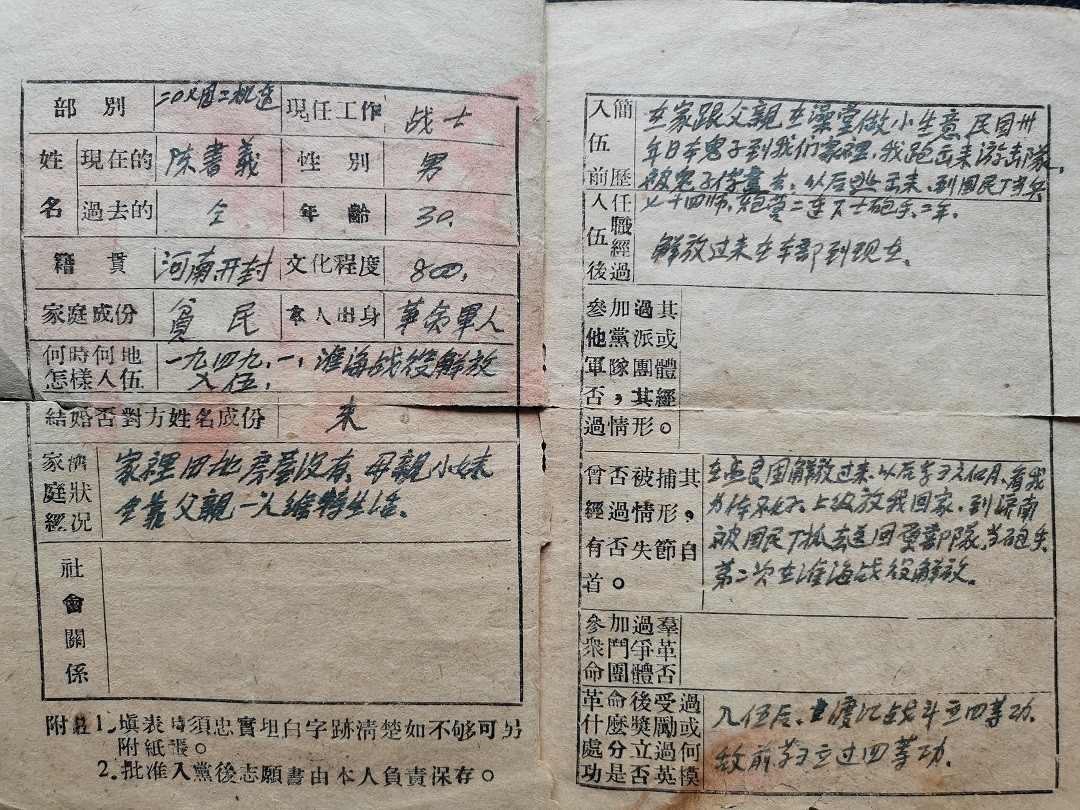 部別 二〇义团二机连 現任工作 战士
姓名 現在的 陈書義 性別 男
過去的 仝 年齡 30.
籍貫 河南,开封 文化程度 800,
家庭成份 貧民 本人出身 革命軍人
何時何地怎樣入伍 一九四九,一,淮海战役解放
入伍,
結婚否對方姓名成份 未
家庭經濟狀况 家裡田地房屋没有,母親小妹
全靠父親一人維持生活、
社會關係
附註1.填表時須忠實坦白字跡清楚如不够可另
附紙張。
2.批准入黨後志願書由本人負責保存。
入伍前簡歷 在家跟父親在澡堂做小生意,民国卅
年日本鬼子到我们家裡,我跑出来游击队,
被鬼子俘去、以后逃出来、到國民丁当兵
入伍後任職經過 七十四师,炮营二连下士砲手,二年,
解放过来在本部到现在、
參加過其
他黨派或
軍隊團體
否,其經
過情形。
曾否被捕其
經過情形,
有否失節自
首。
在孟良固解放过来.以后学习六個月,看我
力体不好、上级放我回家、到濟南
被國民丁抓去送回原部队、当砲手、
第二次在淮海战役解放.
參加過羣
衆鬥爭革
命團體否
革命後受過
什麼獎勵或
處分立過何
功是否英模
入伍后、渡江战斗立四等功.
敌前学习立过四等功.